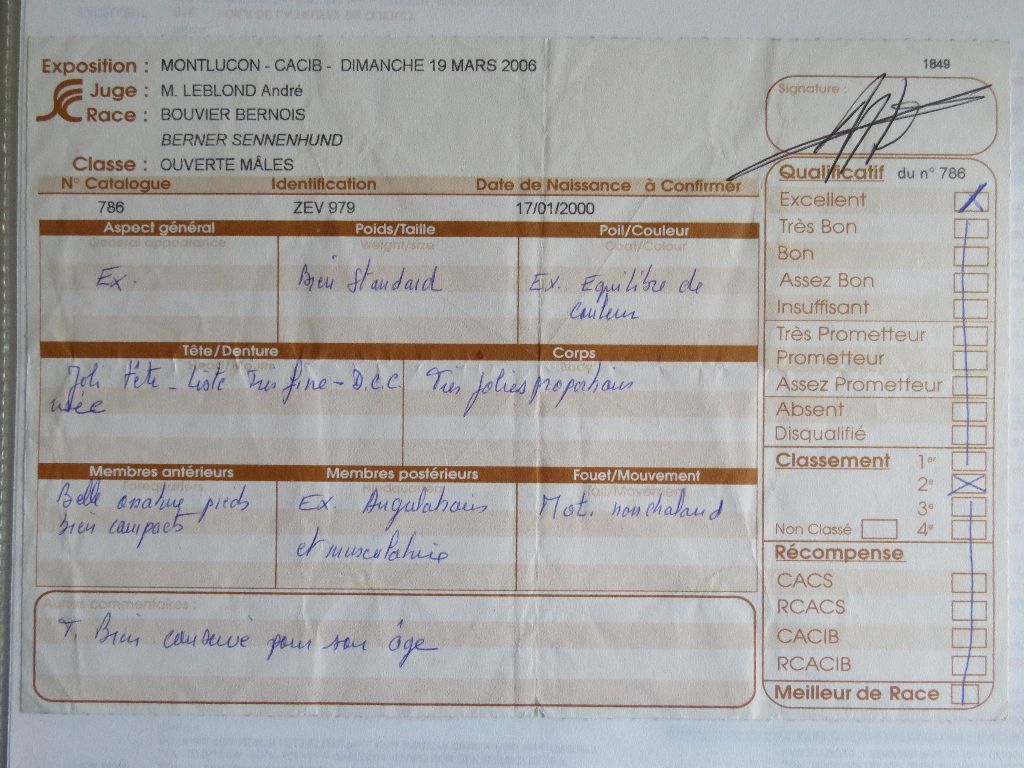 Exposition : MONTLUCON - CACIB - DIMANCHE 19 MARS 2006
1849
Juge : M. LEBLOND André
Signature :
Race : BOUVIER BERNOIS
BERNER SENNENHUND
Classe : OUVERTE MÂLES
N° Catalogue Identification Date de Naissance à Confirmer
786 ZEV 979 17/01/2000
Aspect général Poids/Taille Poil/Couleur
General appearance Weight/size Coat/Colour
Ex. Bien Standard Ex. Equilibre de
couleur
Tête/Denture Corps
Body
Joli tête - liste très fine - D.C.C. Très jolies proportions
usée
Membres antérieurs Membres postérieurs Fouet/Mouvement
Forequarters Hindquarters Tail/Movement
Belle ossature pieds Ex. Angulations Mot. nonchaland
bien compacts et musculature
Autres commentaires :
T. Bien conservé pour son âge
Qualificatif du n° 786
Excellent
Très Bon
Bon
Assez Bon
Insuffisant
Très Prometteur
Prometteur
Assez Prometteur
Absent
Disqualifié
Classement 1er
2e
3e
Non Classé 4e
Récompense
CACS
RCACS
CACIB
RCACIB
Meilleur de Race